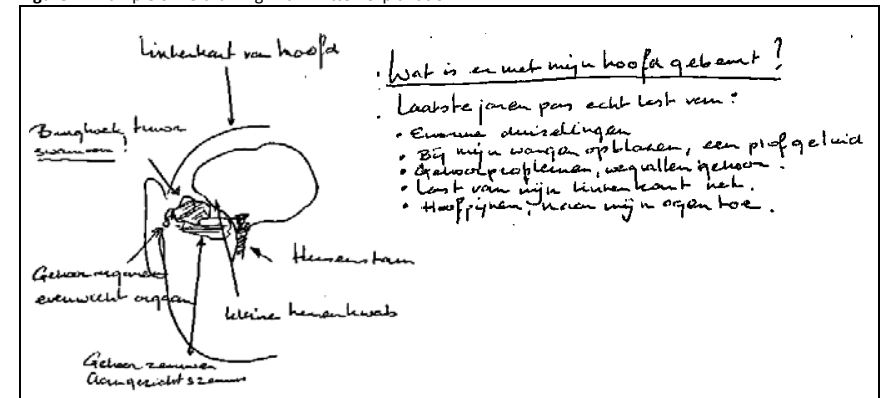 Linkerkant van hoofd
Brughoek tumor
Gehoororgaan
evenwicht orgaan
Gehoor zenuwen
Aangezichtszenuw
kleine hersenkwab
Hersenstam
Wat is er met mijn hoofd gebeurt?
Laatste jaren pas echt last van:
• Enorme duizelingen
• Bij mijn wangen opblazen, een plof geluid
• Gehoorproblemen, wegvallen gehoor.
• Last van mijn linkerkant nek.
• Hoofpijnen, naar mijn ogen toe.